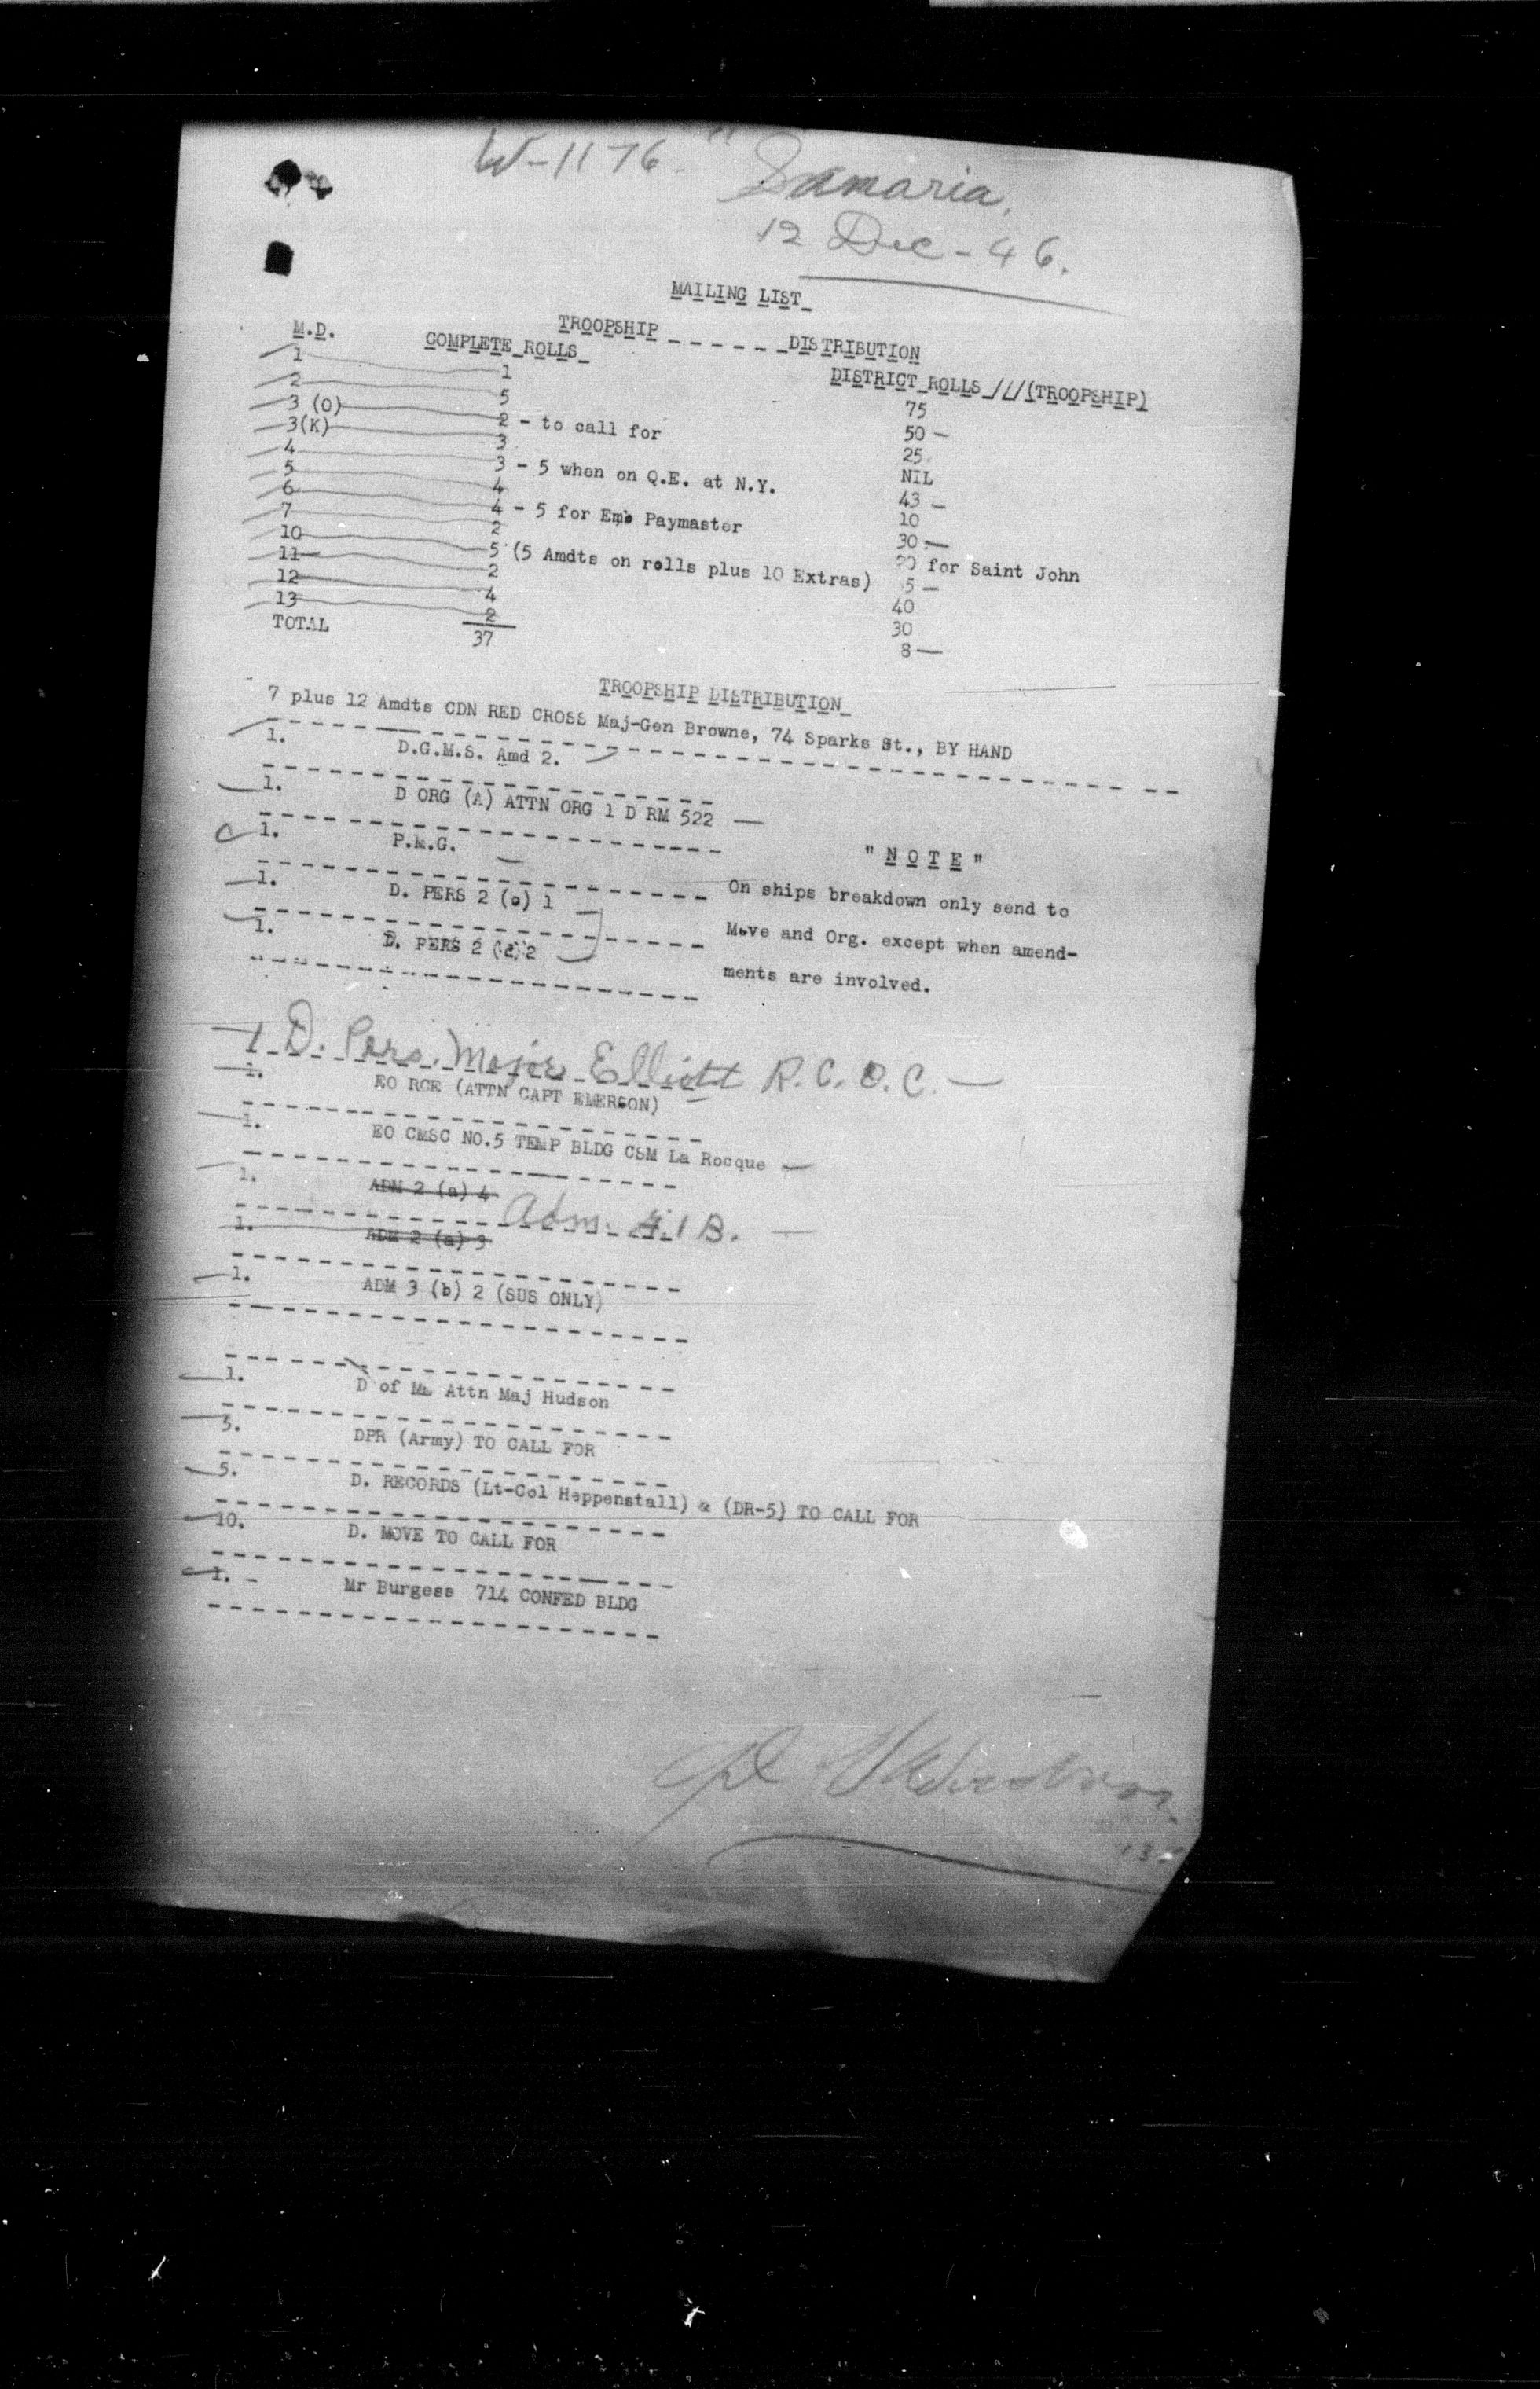 W-1176. "Samaria.
12 Dec - 46.
MAILING LIST
TROOPSHIP - - - - - - DISTRIBUTION
M.D. COMPLETE ROLLS DISTRICT ROLLS /// (TROOPSHIP)
1 1 75
2 5 50 —
3 (O) 2 - to call for 25
3(K) 3 NIL
4 3 - 5 when on Q.E. at N.Y. 43 —
5 4 10
6 4 - 5 for Emb Paymaster 30 —
7 2 20 for Saint John
10 5 (5 Amdts on rolls plus 10 Extras) 5 —
11 2 40
12 4 30
13 2 8 —
TOTAL 37
TROOPSHIP DISTRIBUTION
7 plus 12 Amdts CDN RED CROSS Maj-Gen Browne, 74 Sparks St., BY HAND
1. D.G.M.S. Amd 2.
1. D ORG (A) ATTN ORG 1 D RM 522 —
1. P.M.G.
" N O T E "
1. D. PERS 2 (c) 1
On ships breakdown only send to
1. D. PERS 2 (d) 2
Move and Org. except when amend-
ments are involved.
1 D. Pers. Major Elliott R.C.O.C. —
1. EO RCE (ATTN CAPT EMERSON)
1. EO CMSC NO.5 TEMP BLDG CSM La Rocque —
1. ADM 2 (a) 4
Adm. 1 B. —
1. ADM 2 (a) 3
1. ADM 3 (b) 2 (SUS ONLY)
1. D of Attn Maj Hudson
3. DPR (Army) TO CALL FOR
5. D. RECORDS (Lt-Col Heppenstall) & (DR-5) TO CALL FOR
10. D. MOVE TO CALL FOR
1. - Mr Burgess 714 CONFED BLDG
Cpl